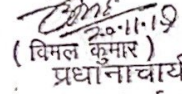 20.11.19
( विमल कुमार )
प्रधानाचार्य